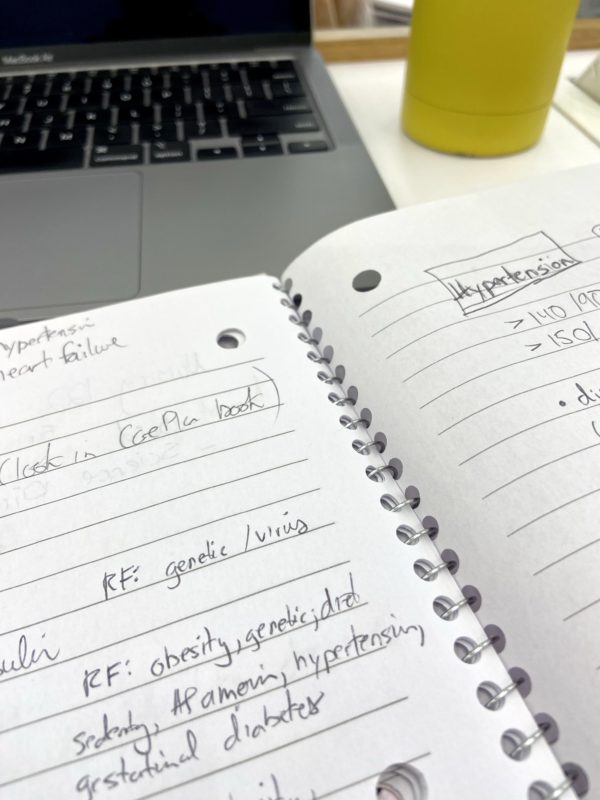 MacBook Air
command
option
hypertensi
heart failure
(look in CarePlan book)
RF: genetic / virus
RF: obesity, genetic, diet
sedenty, hypertension,
gestational diabetes
Hypertension
>140/90
>150/
• di